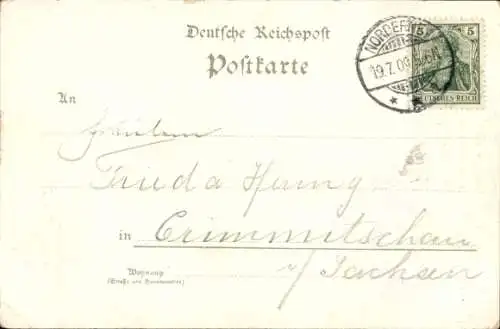 Deutsche Reichspost
Postkarte
NORDERN
19.7.03 5-6N
5 5
DEUTSCHES REICH
An
Fräulein
Frieda Hennig
in Crimmitschau
i/ Sachsen
Wohnung
(Straße und Hausnummer)